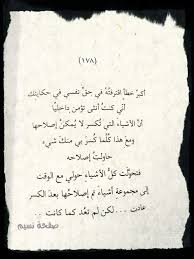 (١٧٨)
أكبرُ خطأ اقترفتُهُ في حقّ نفسي في حكايتك
أنّي كنتُ أنثى تؤمن داخليًا
أنّ الأشياء التي تُكسر لا يُمكنُ إصلاحها
ومع هذا كُلّما كُسرَ بي منكَ شيء
حاولتُ إصلاحه
فتحوّلت كلّ الأشياء حولي مع الوقت
إلى مجموعة أشياء تم إصلاحُها بعد الكسر
عادت ... لكن لم تَعُد كما كانت ..
صفحة نسيم